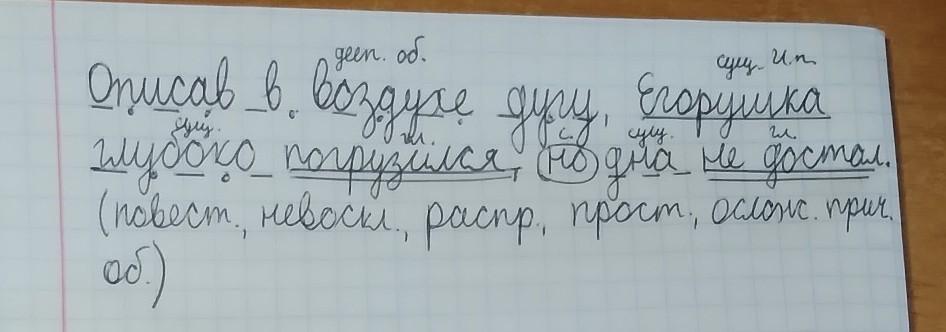 дееп. об. сущ. И.п.
Описав в воздухе дугу, Егорушка
сущ. гл. с. сущ. гл.
глубоко погрузился, но дна не достал.
(повест., невоскл., распр., прост., ослож. прич.
об.)